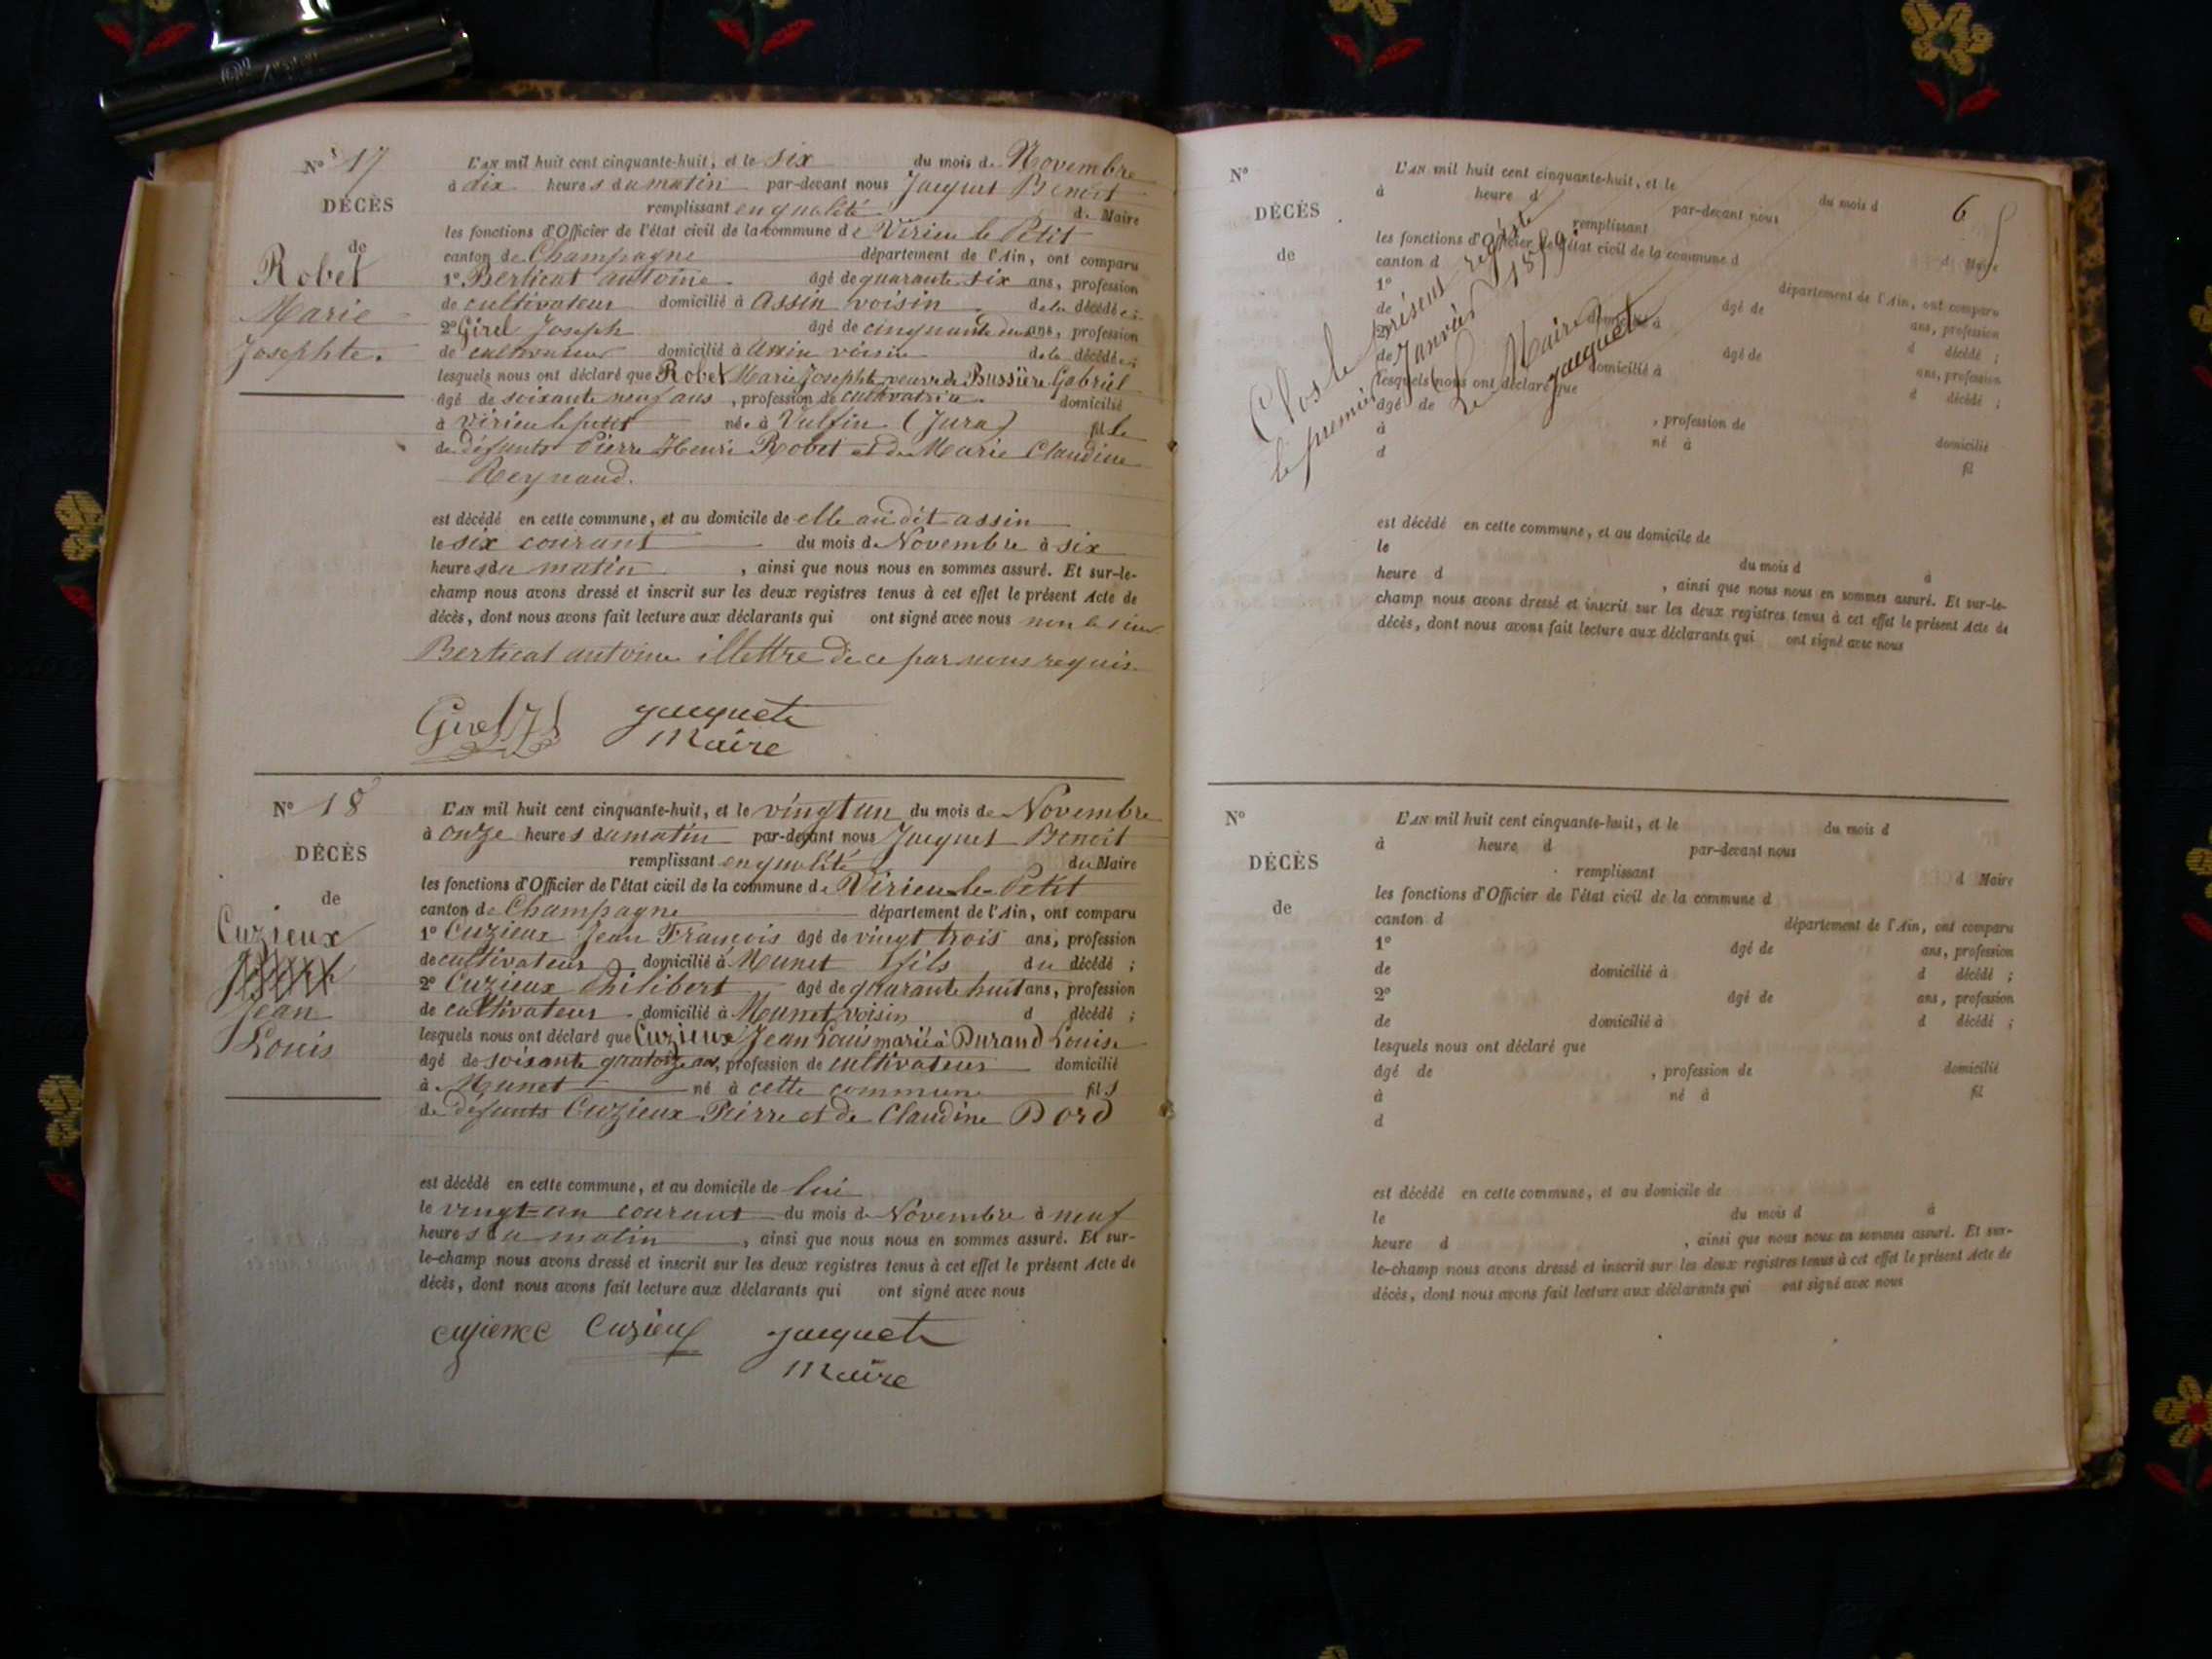 N° 17
DÉCÈS
de
Robet
Marie
Josephte.
L'AN mil huit cent cinquante-huit, et le six du mois de Novembre
à dix heures du matin par-devant nous Jacquet Benoit
remplissant en qualité de Maire
les fonctions d'Officier de l'état civil de la commune de Virieu le Petit
canton de Champagne département de l'Ain, ont comparu
1° Berticat antoine âgé de quarante six ans, profession
de cultivateur domicilié à Assin voisin de la décédée ;
2° Girel Joseph âgé de cinquante deux ans, profession
de cultivateur domicilié à Assin voisin de la décédée ;
lesquels nous ont déclaré que Robet Marie Josephte veuve de Bussière Gabriel
âgé de soixante neuf ans, profession de cultivatrice domicilié
à Virieu le petit née à Vulfin (Jura) fille
de défunts Pierre Henri Robet et de Marie Claudine
Reynaud.
est décédé en cette commune, et au domicile de elle au dit assin
le six courant du mois de Novembre à six
heures du matin, ainsi que nous nous en sommes assuré. Et sur-le-
champ nous avons dressé et inscrit sur les deux registres tenus à cet effet le présent Acte de
décès, dont nous avons fait lecture aux déclarants qui ont signé avec nous non le sieur
Berticat antoine illettré de ce par nous requis
Girel J jacquet
Maire
N° 18
DÉCÈS
de
Cuzieux
Jean
Louis
L'AN mil huit cent cinquante-huit, et le vingt un du mois de Novembre
à onze heures du matin par-devant nous Jacquet Benoit
remplissant en qualité de Maire
les fonctions d'Officier de l'état civil de la commune de Virieu-le-Petit
canton de Champagne département de l'Ain, ont comparu
1° Cuzieux Jean François âgé de vingt trois ans, profession
de cultivateur domicilié à Munet fils du décédé ;
2° Cuzieux Philibert âgé de quarante huit ans, profession
de cultivateur domicilié à Munet, voisin d décédé ;
lesquels nous ont déclaré que Cuzieux Jean Louis marié à Durand Louise
âgé de soixante quatorze ans, profession de cultivateur domicilié
à Munet né à cette commune fils
de défunts Cuzieux Pierre et de Claudine Bord
est décédé en cette commune, et au domicile de lui
le vingt-un courant du mois de Novembre à neuf
heures du matin, ainsi que nous nous en sommes assuré. Et sur-
le-champ nous avons dressé et inscrit sur les deux registres tenus à cet effet le présent Acte de
décès, dont nous avons fait lecture aux déclarants qui ont signé avec nous
Cuzieux jacquet
Maire
6
N°
DÉCÈS
de
L'AN mil huit cent cinquante-huit, et le du mois d
à heure d par-devant nous
remplissant d Maire
les fonctions d'Officier de l'état civil de la commune d
canton d département de l'Ain, ont comparu
1° âgé de ans, profession
de domicilié à d décédé ;
2° âgé de ans, profession
de domicilié à d décédé ;
lesquels nous ont déclaré que
âgé de , profession de domicilié
à né à fil
d
Clos le présent registre
le premier Janvier 1859
Le Maire
jacquet
est décédé en cette commune, et au domicile de
le du mois d à
heure d , ainsi que nous nous en sommes assuré. Et sur-le-
champ nous avons dressé et inscrit sur les deux registres tenus à cet effet le présent Acte de
décès, dont nous avons fait lecture aux déclarants qui ont signé avec nous
N°
DÉCÈS
de
L'AN mil huit cent cinquante-huit, et le du mois d
à heure d par-devant nous
remplissant d Maire
les fonctions d'Officier de l'état civil de la commune d
canton d département de l'Ain, ont comparu
1° âgé de ans, profession
de domicilié à d décédé ;
2° âgé de ans, profession
de domicilié à d décédé ;
lesquels nous ont déclaré que
âgé de , profession de domicilié
à né à fil
d
est décédé en cette commune, et au domicile de
le du mois d à
heure d , ainsi que nous nous en sommes assuré. Et sur-
le-champ nous avons dressé et inscrit sur les deux registres tenus à cet effet le présent Acte de
décès, dont nous avons fait lecture aux déclarants qui ont signé avec nous